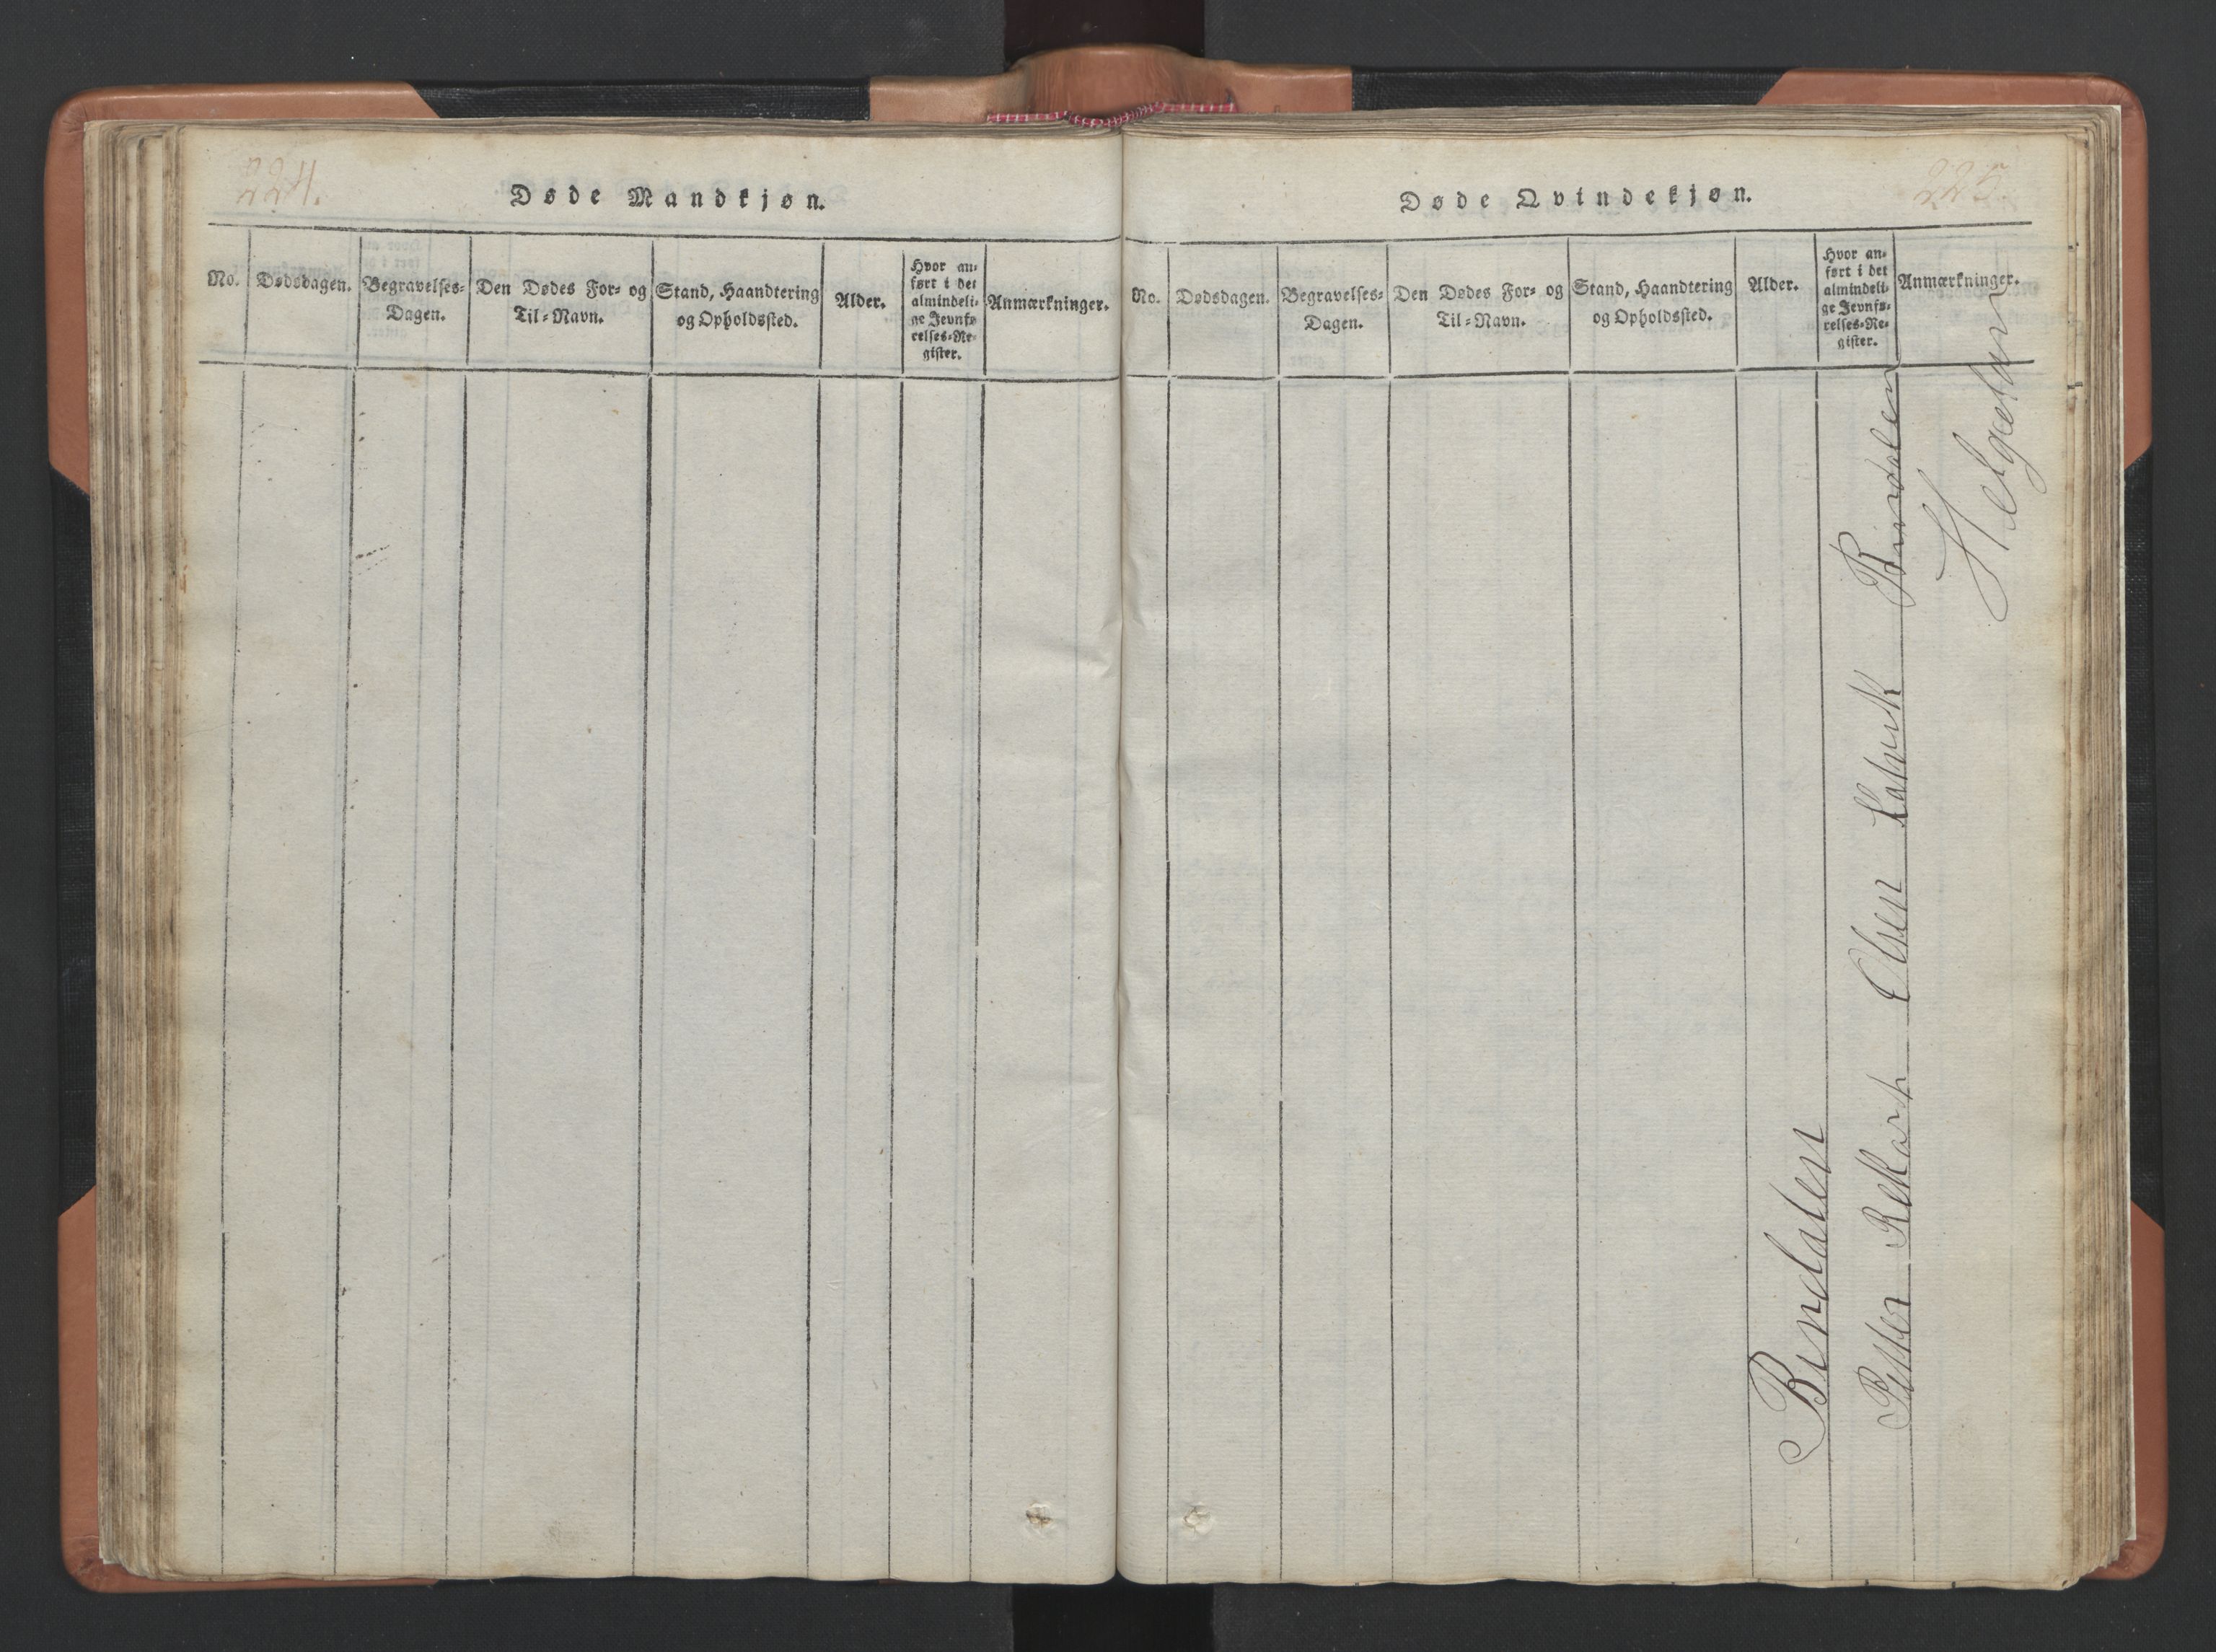 224.
Døde Mandkjøn.
No.
Dødsdagen.
Begravelses-
Dagen.
Den Dødes For- og
Til-Navn.
Stand, Haandtering
og Opholdssted.
Alder.
Hvor an-
ført i det
almindeli-
ge Jevnfø-
relses-Re-
gister.
Anmærkninger.
225.
Døde Qvindekjøn.
No.
Dødsdagen.
Begravelses-
Dagen.
Den Dødes For- og
Til-Navn.
Stand, Haandtering
og Opholdssted.
Alder.
Hvor an-
ført i det
almindeli-
ge Jevnfø-
relses-Re-
gister.
Anmærkninger.
Bindalen
Petter Olsen Bindalen
Helgelan